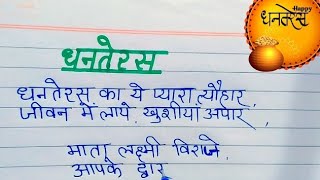 Happy
धनतेरस
धनतेरस
धनतेरस का ये प्यारा त्यौहार,
जीवन में लाये खुशीयाँ अपार,
माता लक्ष्मी विराजे,
आपके द्वार